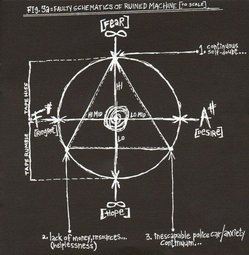 Fig. 3a = FAULTY SCHEMATICS OF RUINED MACHINE [TO SCALE]
[FEAR]
1. continuous
self-doubt...
HI
TAPE HISS
F#
HI MID
LO MID
A#
[ANGER]
[DESIRE]
TAPE RUMBLE
LO
[HOPE]
2. lack of money, resources...
(helplessness)
3. inescapable police car/anxiety
continuum...